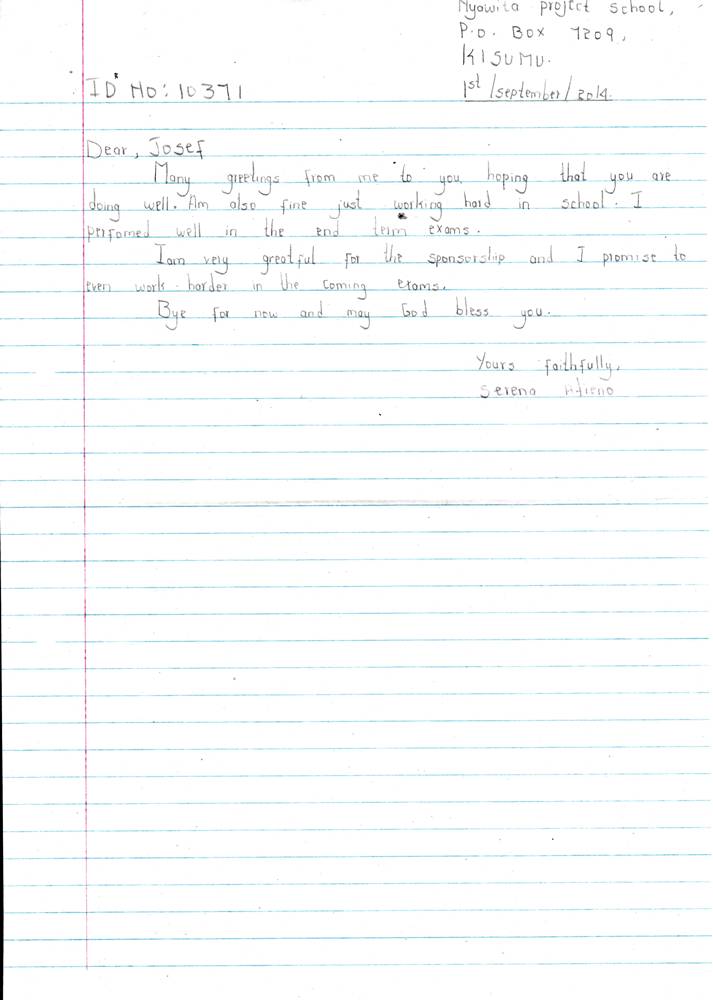 Nyawita project school,
P.O. BOX 7209,
KISUMU.
ID No: 10371
1st/september/2014.
Dear, Josef
Many greetings from me to you, hoping that you are
doing well. Am also fine just working hard in school. I
perfomed well in the end term exams.
Iam very greatful for the sponsorship and I promise to
even work harder in the coming exams.
Bye for now and may God bless you.
Yours faithfully,
Serena Atieno